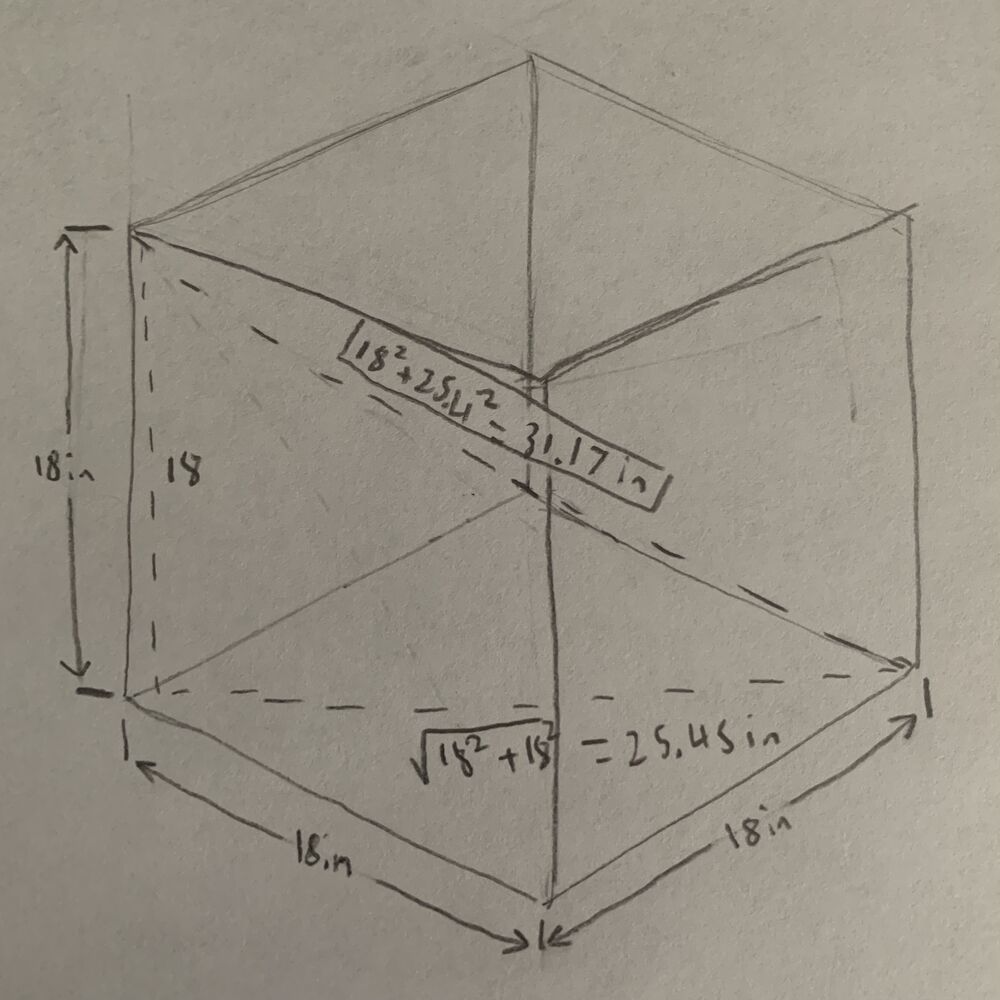 18² + 25.4² = 31.17 in
18in
18
√18² + 18² = 25.45 in
18in
18in